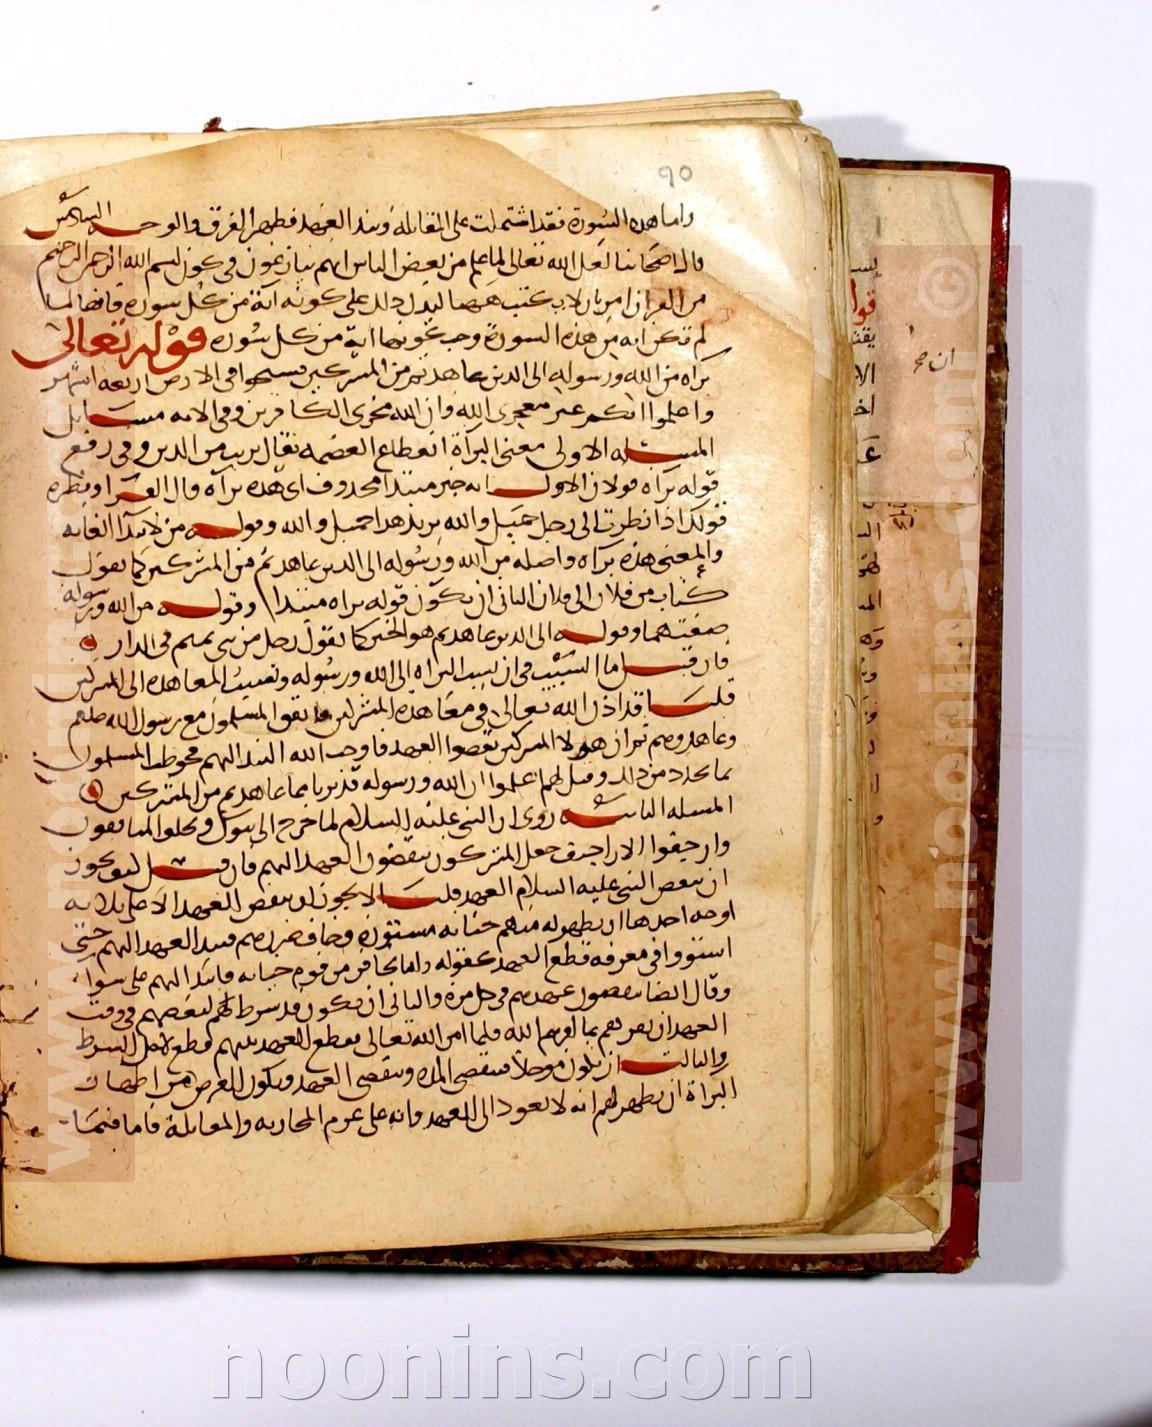 ٩٥
واما هذه السورة فقد اشتملت على المقاتلة ونبذ العهد فظهر الفرق والوجه السادس
قال اصحابنا لعل الله تعالى لما علم من بعض الناس انهم يتنازعون في كون بسم الله الرحمن الرحيم
من القران امر بان لا يكتب ههنا ليدل ذلك على كونه آية من كل سورة فانها لما
لم تكن آية من هذه السورة وجب كونها آية من كل سورة قوله تعالى
براه من الله ورسوله الى الذين عاهدتم من المشركين فسيحوا في الارض اربعة اشهر
واعلموا انكم غير معجزي الله وان الله مخزى الكافرين وفي الآية مسايل
المسئلة الاولى معنى البرآة انقطاع العصمة يقال بريت من الدين وفي رفع
قوله برآه قولان الاول انه خبر مبتدا محذوف اى هذه برآه قال الفرا ونظيره
قولك اذا نظرت الى رجل جميل والله يريد هذا جميل والله وقوله من لابتدآ الغاية
والمعنى هذه برآه واصلة من الله ورسوله الى الذين عاهدتم من المشركين كما يقول
كتاب من فلان الى فلان الثانى ان يكون قوله براه مبتدا وقوله من الله ورسوله
صفتهما وقوله الى الذين عاهدتم هو الخبر كما يقول رجل من بني تميم في الدار
فان قيل ما السبب في ان نسب البراه الى الله ورسوله ونسبت المعاهده الى المشركين
قلنا قد اذن الله تعالى في معاهدة المشركين فاتفق المسلمون مع رسول الله صلعم
وعاهدوهم ثم ان هولا المشركين نقضوا العهد فاوجب الله النبذ اليهم فخوطب المسلمون
بما تجدد من ذلك وقيل لهم اعلموا ان الله ورسوله قد بريا مما عاهدتم من المشركين
المسله الثانية روى ان النبى عليه السلام لما خرج الى تبوك وتخلوا المنافقون
وارجفوا الاراجيف جعل المشركون ينقضون العهد اليهم فان قيل كيف يجوز
ان ينقض النبي عليه السلام العهد قلنا لا يجوز له نقض العهد الا على ثلاثة
اوجه احدها ان يظهر له منهم خيانة مستورة وخاف ضررهم فنبذ العهد اليهم حتى
استووا في معرفة قطع العهد كقوله واما تخافن من قوم خيانة فانبذ اليهم على سواء
وقال ايضا ينقضون عهدهم في كل مرة والثاني ان يكون قد شرط لهم لبعضهم في وقت
العهد ان يقرهم بما اقرهم الله فلما امر الله تعالى بقطع العهد بينهم قطع لاجل الشرط
والثالث ان يكون موجلا فتنقضى المدة وينقضى العهد ويكون الغرض من اظهار
البرآة ان يظهر لهم انه لا يعود الى العهد وانه على عزم المحاربة والمقاتلة فاما فيما
ان صح
قوله
© www.noonins.com
www.noonins.com
noonins.com